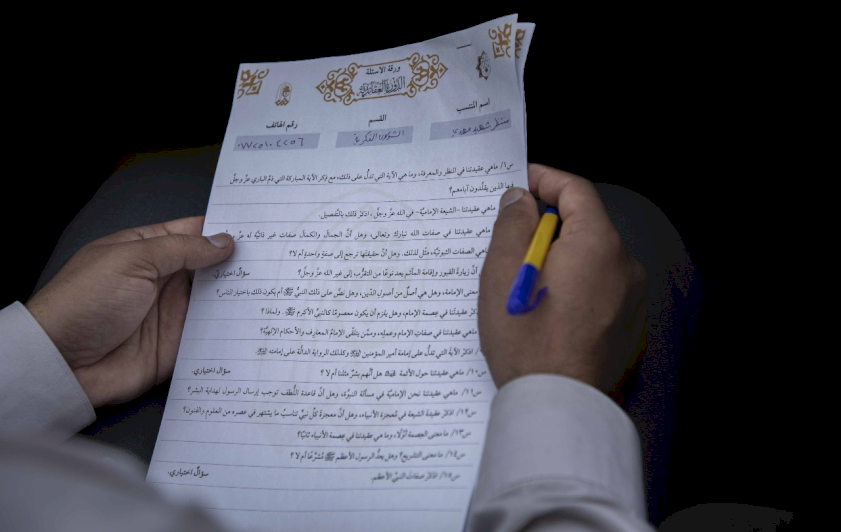 ورقة الاسئلة
الدورة العقائدية
اسم المنتسب
القسم
رقم الهاتف
س١/ ماهي عقيدتنا في النظر والمعرفة، وما هي الآية التي تدلُّ على ذلك، مع ذكر الآية المباركة التي ذمَّ الباري عزَّ وجلَّ
فيها الذين يقلِّدون آباءهم؟
ماهي عقيدتنا -الشيعة الإماميّة- في الله عزَّ وجلَّ، اذكر ذلك بالتفصيل.
ماهي عقيدتنا في صفات الله تبارك وتعالى، وهل أنَّ الجمال والكمال صفات غير ذاتيَّة له عزَّ
ماهي الصفات الثبوتيَّة، مثّل لذلك. وهل أنَّ حقيقتها ترجع إلى صفةٍ واحدةٍ أم لا؟
أنَّ زيارة القبور وإقامة المآتم يعد نوعًا من التقرُّب إلى غير الله عزَّ وجلَّ؟ سؤال اختياري.
معنى الإمامة، وهل هي أصلٌ من أصول الدِّين، وهل نصَّ على ذلك النبيُّ ﷺ أم يكون ذلك باختيار الناس؟
عقيدتنا في عِصمة الإمام، وهل يلزم أن يكون معصومًا كالنبيِّ الأكرم ﷺ. ولماذا؟
ماهي عقيدتنا في صفات الإمام وعمله، وممَّن يتلقَّى الإمامُ المعارف والأحكام الإلهيَّة؟
/ اذكر الآية التي تدلُّ على إمامة أمير المؤمنين وكذلك الرواية الدالَّة على إمامته
س١٠/ ماهي عقيدتنا حول الأئمة هل أنَّهم بشرٌ مثلنا أم لا؟ سؤال اختياري.
س١١/ ماهي عقيدتنا نحن الإماميَّة في مسألة النبوَّة، وهل أنَّ قاعدة اللُّطف توجب إرسال الرسول لهداية البشر؟
س١٢/ اذكر عقيدة الشيعة في مُعجزة الأنبياء، وهل أنَّ معجزة كلِّ نبيٍّ تناسبُ ما يشتهر في عصره من العلوم والفنون؟
س١٣/ ما معنى العِصمة أوَّلًا، وما هي عقيدتنا في عِصمة الأنبياء ثانيًا؟
س١٤/ ما معنى التشريع؟ وهل يعدُّ الرسول الأعظم ﷺ مُشرِّعًا أم لا؟
س١٥/ اذكر صفات النبيِّ الأعظم. سؤال اختياري.